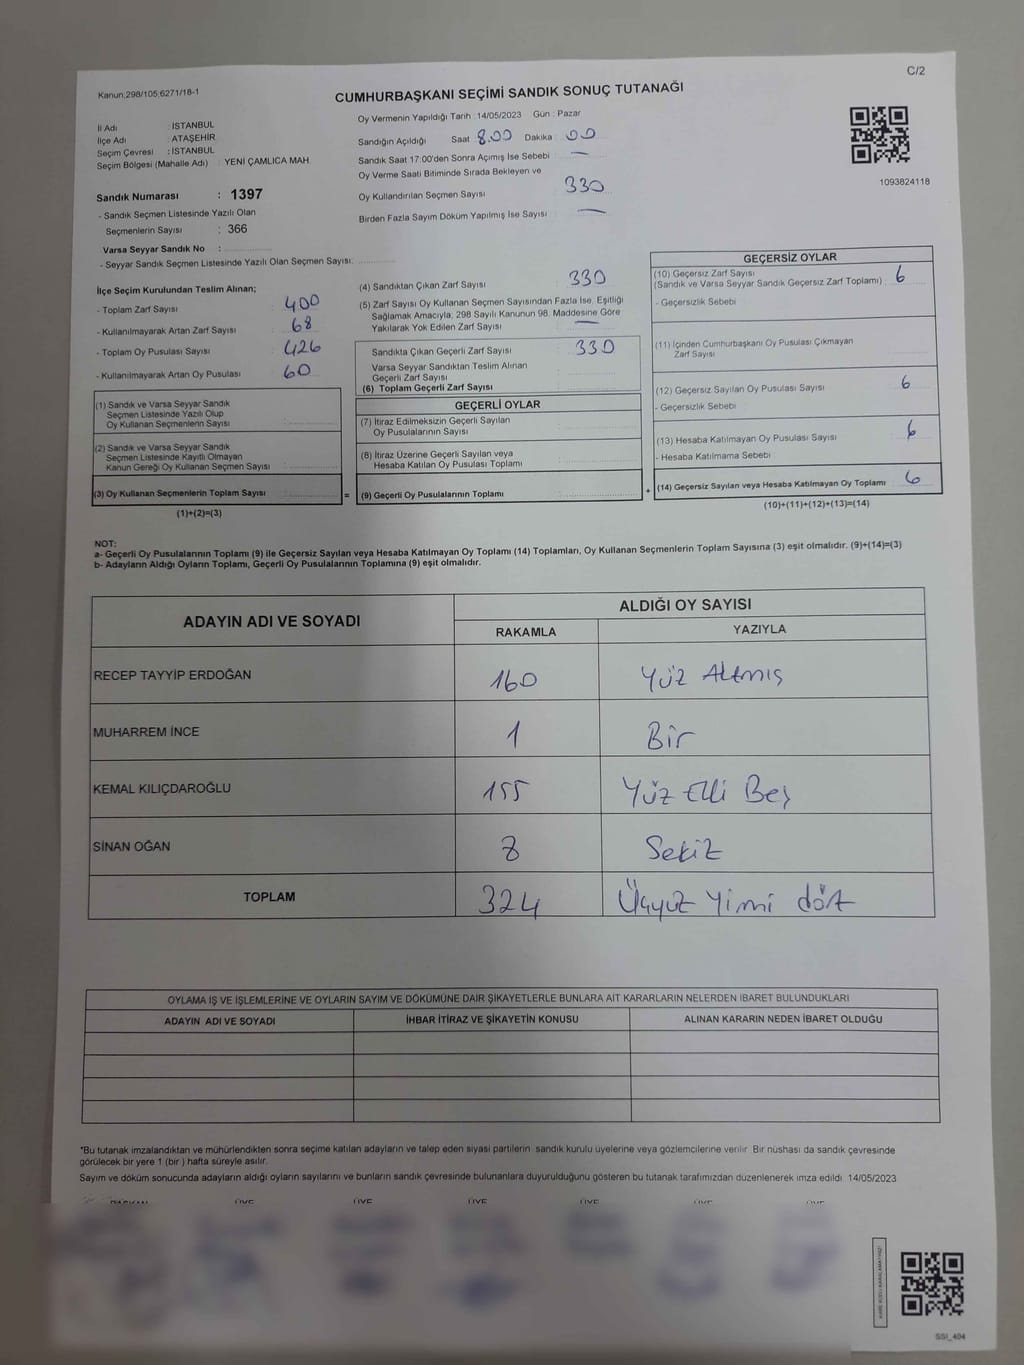 C/2
Kanun;298/105;6271/18-1
CUMHURBAŞKANI SEÇİMİ SANDIK SONUÇ TUTANAĞI
İl Adı : İSTANBUL
İlçe Adı : ATAŞEHİR
Seçim Çevresi : İSTANBUL
Seçim Bölgesi (Mahalle Adı) : YENİ ÇAMLICA MAH.
Sandık Numarası : 1397
- Sandık Seçmen Listesinde Yazılı Olan
Seçmenlerin Sayısı : 366
Varsa Seyyar Sandık No :
- Seyyar Sandık Seçmen Listesinde Yazılı Olan Seçmen Sayısı:
Oy Vermenin Yapıldığı Tarih : 14/05/2023 Gün : Pazar
Sandığın Açıldığı Saat 8.00 Dakika : 00
Sandık Saat 17:00'den Sonra Açımış İse Sebebi : —
Oy Verme Saati Bitiminde Sırada Bekleyen ve
Oy Kullandırılan Seçmen Sayısı : 330
Birden Fazla Sayım Döküm Yapılmış İse Sayısı : —
1093824118
İlçe Seçim Kurulundan Teslim Alınan;
- Toplam Zarf Sayısı : 400
- Kullanılmayarak Artan Zarf Sayısı : 68
- Toplam Oy Pusulası Sayısı : 426
- Kullanılmayarak Artan Oy Pusulası : 60
(1) Sandık ve Varsa Seyyar Sandık
Seçmen Listesinde Yazılı Olup
Oy Kullanan Seçmenlerin Sayısı :
(2) Sandık ve Varsa Seyyar Sandık
Seçmen Listesinde Kayıtlı Olmayan
Kanun Gereği Oy Kullanan Seçmen Sayısı :
(3) Oy Kullanan Seçmenlerin Toplam Sayısı :
(1)+(2)=(3)
(4) Sandıktan Çıkan Zarf Sayısı : 330
(5) Zarf Sayısı Oy Kullanan Seçmen Sayısından Fazla İse, Eşitliği
Sağlamak Amacıyla, 298 Sayılı Kanunun 98. Maddesine Göre
Yakılarak Yok Edilen Zarf Sayısı : —
Sandıkta Çıkan Geçerli Zarf Sayısı : 330
Varsa Seyyar Sandıktan Teslim Alınan
Geçerli Zarf Sayısı :
(6) Toplam Geçerli Zarf Sayısı :
GEÇERLİ OYLAR
(7) İtiraz Edilmeksizin Geçerli Sayılan
Oy Pusulalarının Sayısı :
(8) İtiraz Üzerine Geçerli Sayılan veya
Hesaba Katılan Oy Pusulası Toplamı :
= (9) Geçerli Oy Pusulalarının Toplamı :
GEÇERSİZ OYLAR
(10) Geçersiz Zarf Sayısı
(Sandık ve Varsa Seyyar Sandık Geçersiz Zarf Toplamı) : 6
- Geçersizlik Sebebi :
(11) İçinden Cumhurbaşkanı Oy Pusulası Çıkmayan
Zarf Sayısı :
(12) Geçersiz Sayılan Oy Pusulası Sayısı : 6
- Geçersizlik Sebebi :
(13) Hesaba Katılmayan Oy Pusulası Sayısı : 6
- Hesaba Katılmama Sebebi :
+ (14) Geçersiz Sayılan veya Hesaba Katılmayan Oy Toplamı : 6
(10)+(11)+(12)+(13)=(14)
NOT:
a- Geçerli Oy Pusulalarının Toplamı (9) ile Geçersiz Sayılan veya Hesaba Katılmayan Oy Toplamı (14) Toplamları, Oy Kullanan Seçmenlerin Toplam Sayısına (3) eşit olmalıdır. (9)+(14)=(3)
b- Adayların Aldığı Oyların Toplamı, Geçerli Oy Pusulalarının Toplamına (9) eşit olmalıdır.
ADAYIN ADI VE SOYADI ALDIĞI OY SAYISI
RAKAMLA YAZIYLA
RECEP TAYYİP ERDOĞAN 160 Yüz Altmış
MUHARREM İNCE 1 Bir
KEMAL KILIÇDAROĞLU 155 Yüz Elli Beş
SİNAN OĞAN 8 Sekiz
TOPLAM 324 Üçyüz Yimi dört
OYLAMA İŞ VE İŞLEMLERİNE VE OYLARIN SAYIM VE DÖKÜMÜNE DAİR ŞİKAYETLERLE BUNLARA AİT KARARLARIN NELERDEN İBARET BULUNDUKLARI
ADAYIN ADI VE SOYADI İHBAR İTİRAZ VE ŞİKAYETİN KONUSU ALINAN KARARIN NEDEN İBARET OLDUĞU
*Bu tutanak imzalandıktan ve mühürlendikten sonra seçime katılan adayların ve talep eden siyasi partilerin sandık kurulu üyelerine veya gözlemcilerine verilir. Bir nüshası da sandık çevresinde
görülecek bir yere 1 (bir ) hafta süreyle asılır.
Sayım ve döküm sonucunda adayların aldığı oyların sayılarını ve bunların sandık çevresinde bulunanlara duyurulduğunu gösteren bu tutanak tarafımızdan düzenlenerek imza edildi. 14/05/2023
BAŞKAN ÜYE ÜYE ÜYE ÜYE ÜYE ÜYE
SSI_404